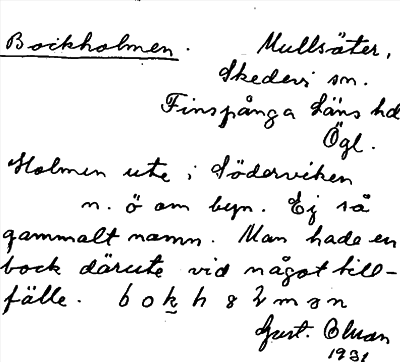 Bockholmen. Mullsäter,
Skedevi sn.
Finspånga läns hd
Ögl.
Holmen ute i Söderviken
n. ö om byn. Ej så
gammalt namn. Man hade en
bock därute vid något till-
fälle. b o k h
Gust.
1931